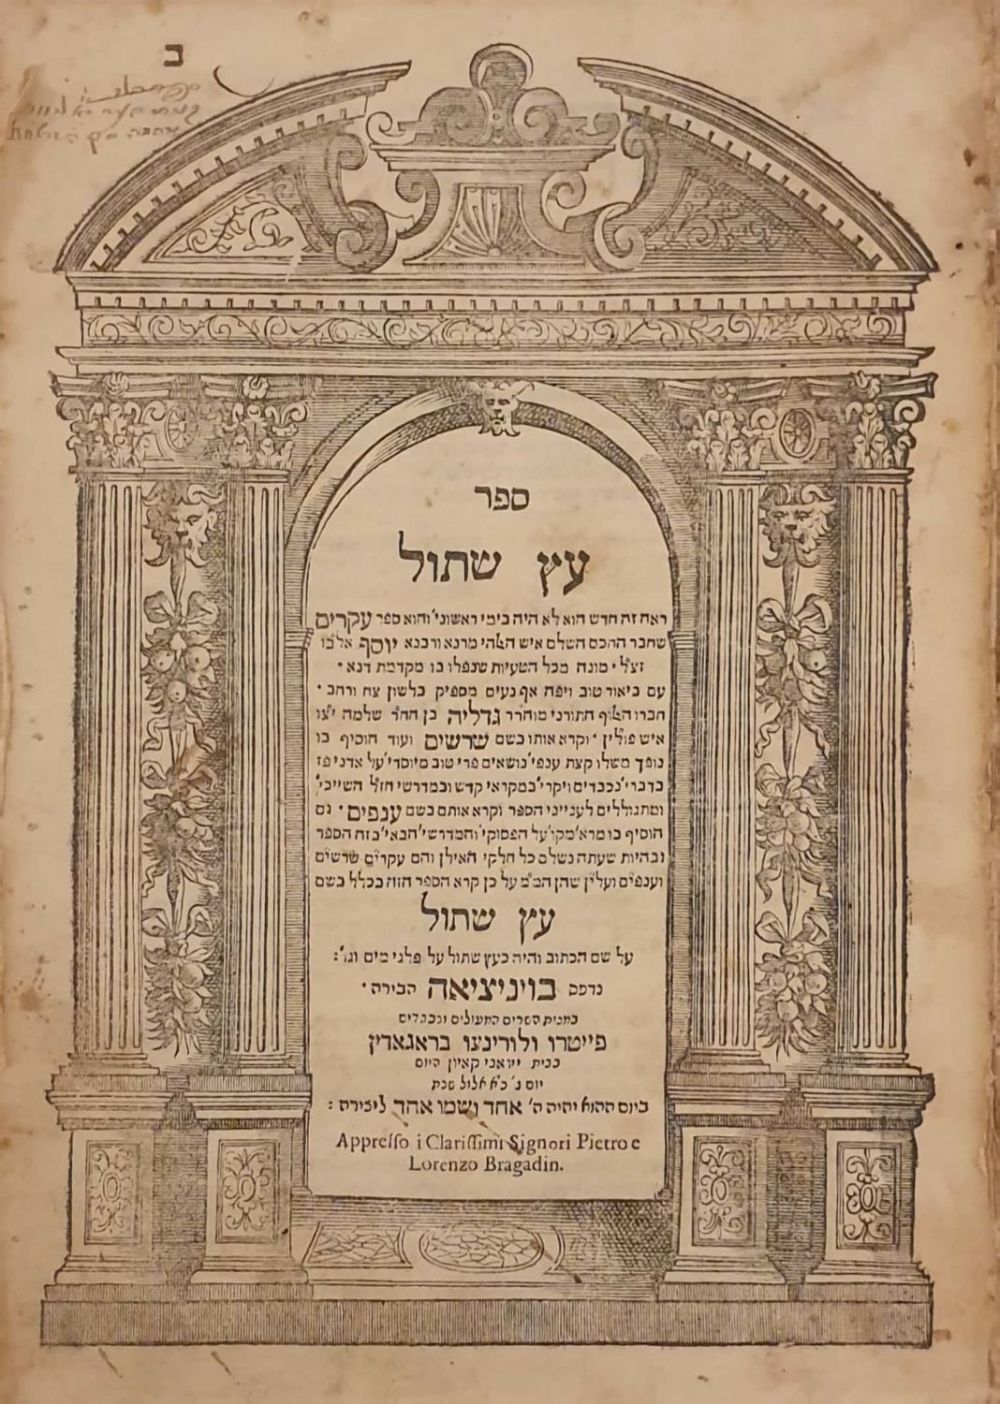 ב
ספר
עץ שתול
ראה זה חדש הוא לא היה בימי ראשוני' והוא ספר עקרים
שחבר החכם השלם איש האלהי מרנא ורבנא יוסף אלבו
זצ"ל · מוגה מכל הטעיות שנפלו בו מקדמת דנא ·
עם ביאור טוב ויפה אף נעים מספיק בלשון צח ורחב ·
חברו האלוף התורני מוהרר גדליה בן החר שלמה יצו
איש פולין · וקרא אותו בשם שרשים ועוד הוסיף בו
נופך משלו קצת ענפי' נושאים פרי טוב מיוסדי' על אדני פז
בדברי' נכבדים ויקרי' במקראי קדש ובמדרשי חזל השייכי'
ומתגוללים לענייני הספר וקרא אותם בשם ענפים · גם
הוסיף בו מראי מקו' על הפסוקי' והמדרשי' הבאי' בזה הספר
ובהיות שעתה נשלם כל חלקי האילן והם עקרים שרשים
וענפים ועלין שהן המ"מ על כן קרא הספר הזה בכלל בשם
עץ שתול
על שם הכתוב והיה כעץ שתול על פלגי מים וגו' :
נדפס בויניציאה הבירה ·
במצות השרים המעולים ונכבדים
פייטרו ולורינצו בראגאדין
בבית יואני קאיון היום
יום ג' כ"א אלול שנת
ביום ההוא יהיה ה' אחד ושמו אחד ליצירה :
Appresso i Clarissimi Signori Pietro e
Lorenzo Bragadin.